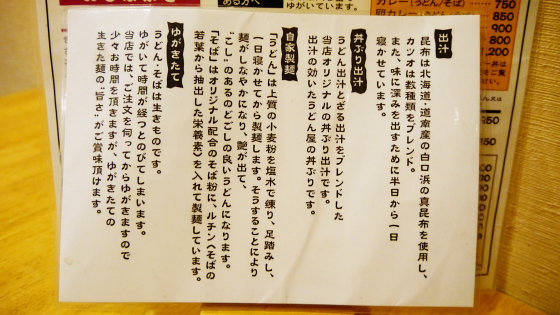 出汁
昆布は北海道・道南産の白口浜の真昆布を使用し、
カツオは数種類をブレンド。
また、味に深みを出すために半日から一日
寝かせています。
丼ぶり出汁
うどん出汁とざる出汁をブレンドした
当店オリジナルの丼ぶり出汁です。
出汁の効いたうどん屋の丼ぶりです。
自家製麺
「うどん」は上質の小麦粉を塩水で練り、足踏みし、
一日寝かせてから製麺します。そうすることにより
麺がしなやかになり、艶が出て、
"こし"のあるのどごしの良いうどんになります。
「そば」はオリジナル配合のそば粉に、ルチン(そばの
若葉から抽出した栄養素)を入れて製麺しています。
ゆがきたて
うどん・そばは生きものです。
ゆがいて時間が経つとのびてしまいます。
当店では、ご注文を伺ってからゆがきますので
少々お時間を頂きますが、ゆがきたての
生きた麺の"旨さ"がご賞味頂けます。
ゆがいています。
カレー(うどん/そば)
750
850
900
800
1,200